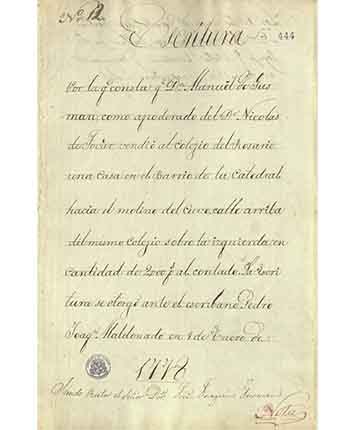 No. 12
Escritura
444
Por la q.e consta q.e Dn. Manuel de Gus
man como apoderado del Dr. Nicolas
de vendió al colegio del Rosario
una casa en el Barrio de la Catedral
hacia el molino del calle arriba
del mismo colegio sobre la izquierda en
cantidad de 2000 p. al contado. La escri
tura se otorgó ante el escribano Pedro
Joaq.n Maldonado en 8 de Enero de
1778
Siendo Rector el Señor Joaquin
Nota